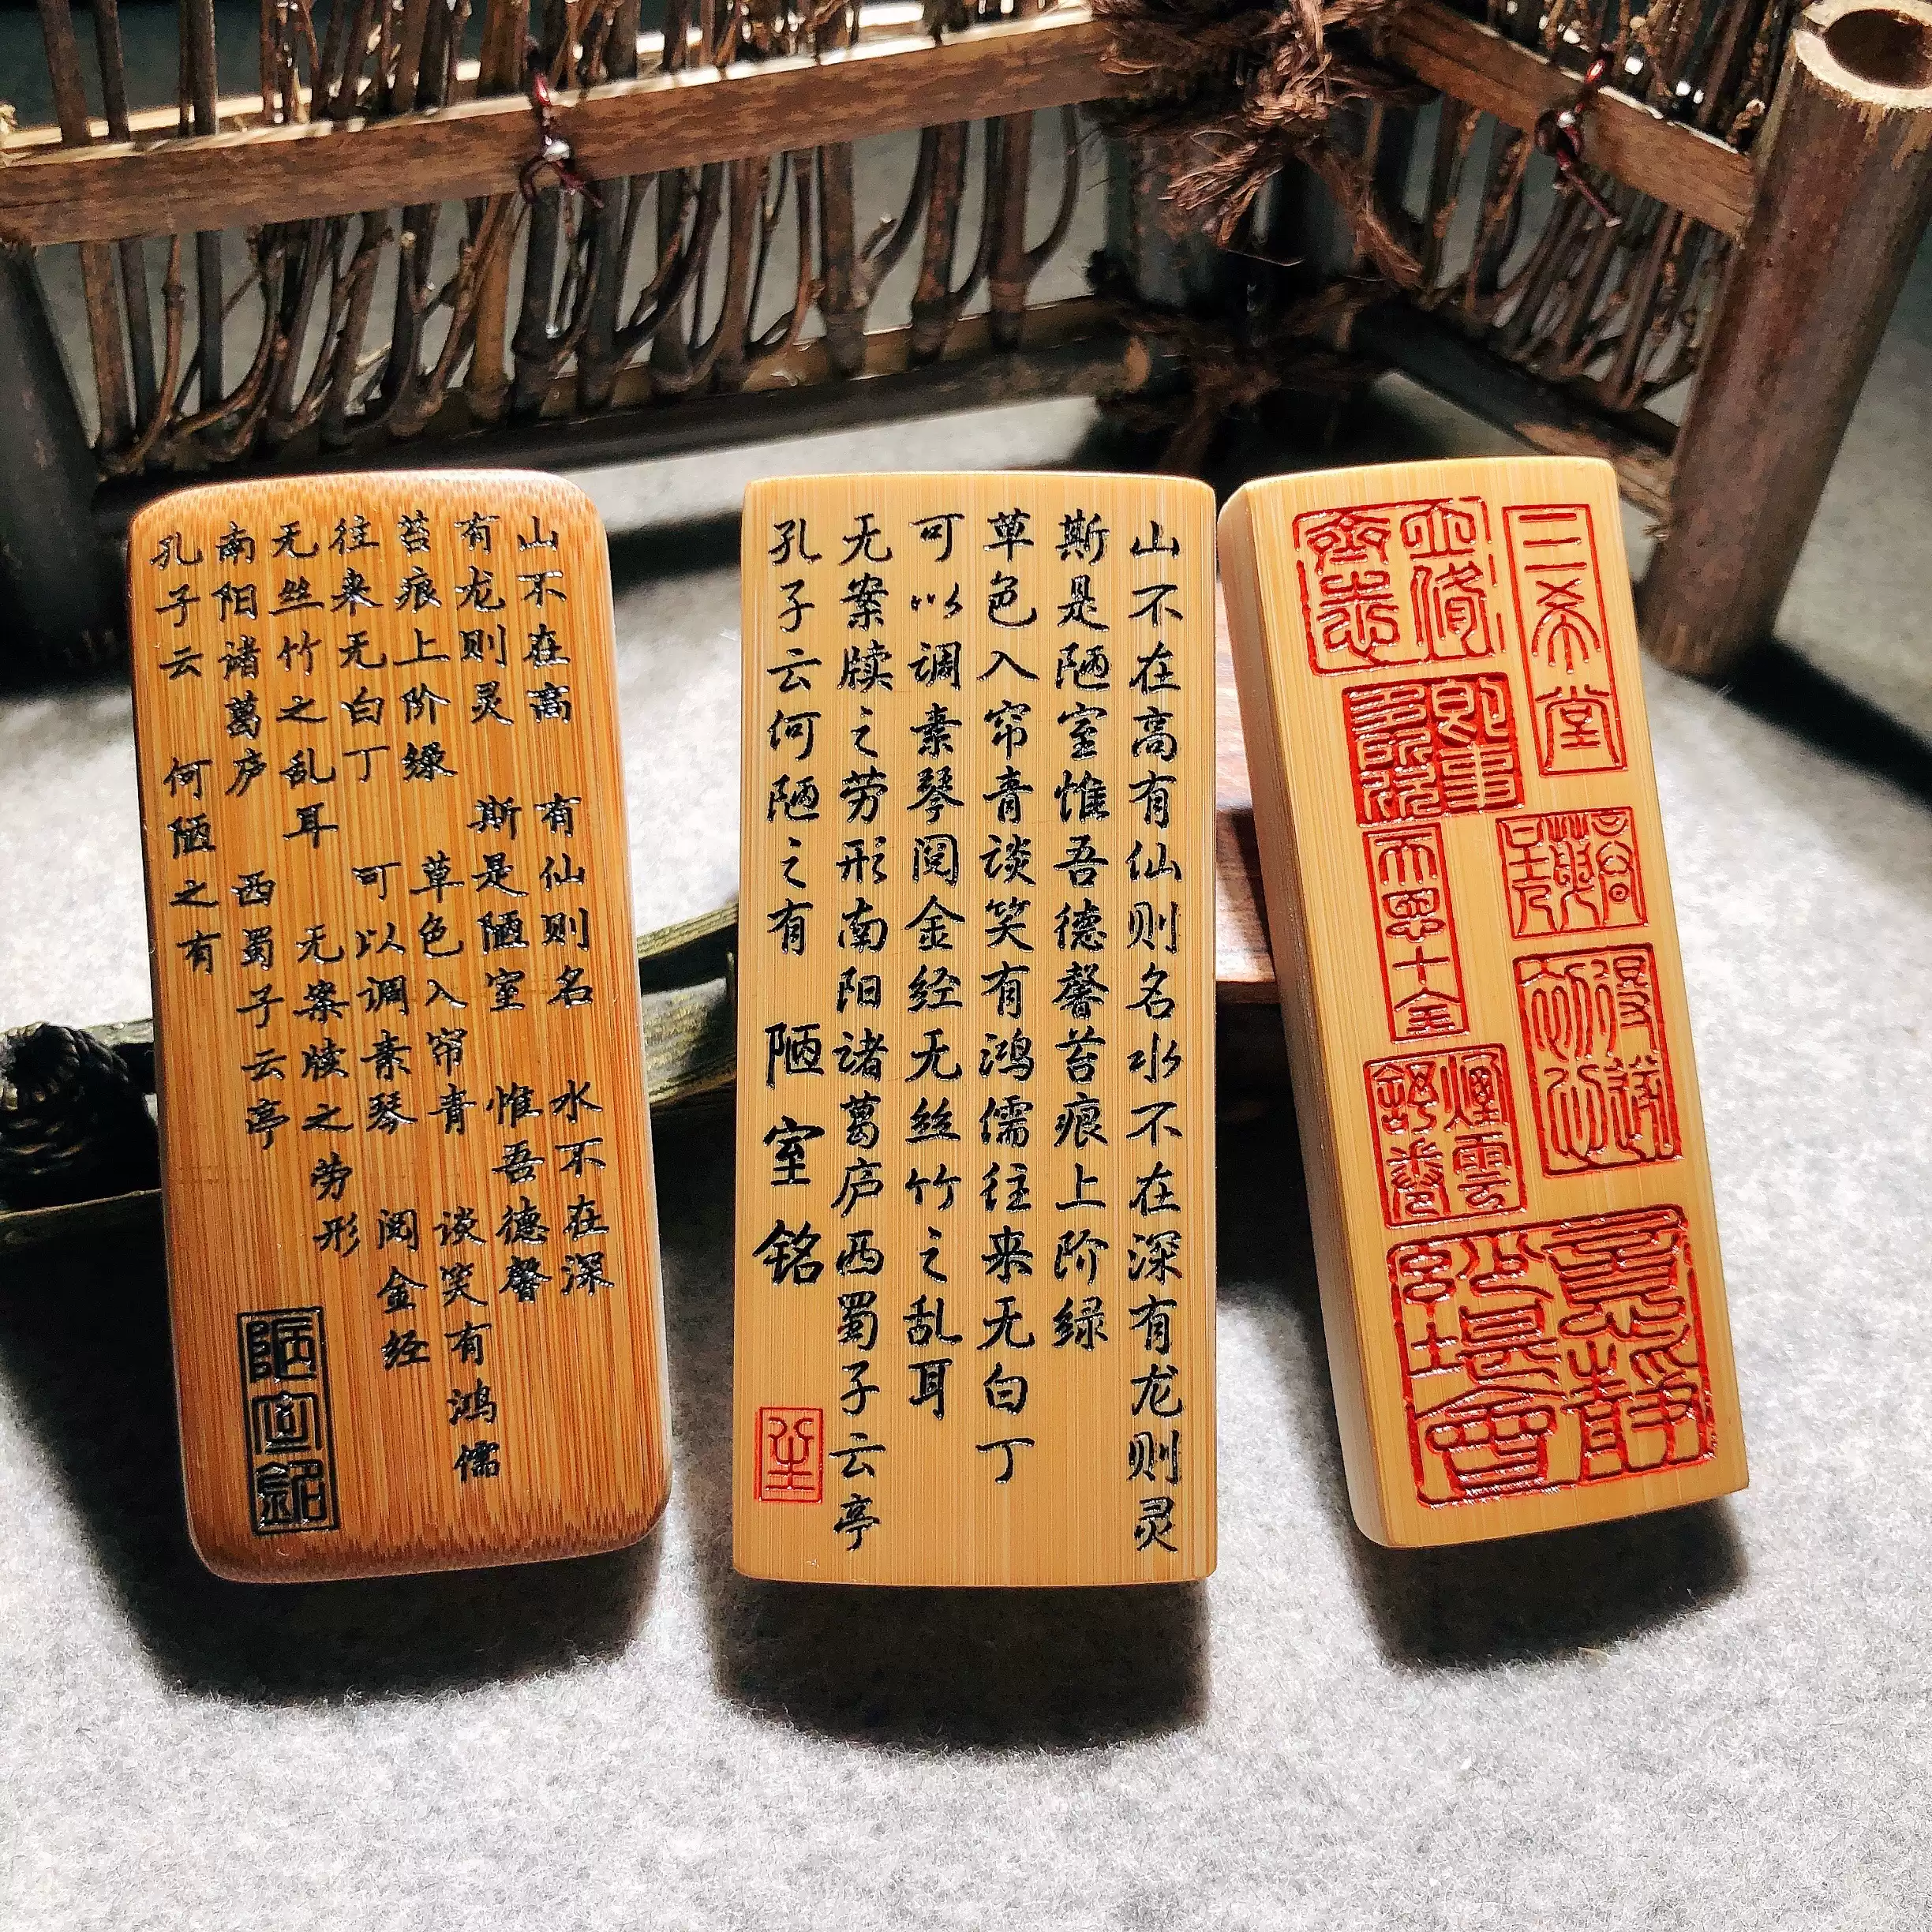 山不在高 有仙则名 水不在深
有龙则灵 斯是陋室 惟吾德馨
苔痕上阶绿 草色入帘青 谈笑有鸿儒
往来无白丁 可以调素琴 阅金经
无丝竹之乱耳 无案牍之劳形
南阳诸葛庐 西蜀子云亭
孔子云 何陋之有
陋室銘
山不在高有仙则名水不在深有龙则灵
斯是陋室惟吾德馨苔痕上阶绿
草色入帘青谈笑有鸿儒往来无白丁
可以调素琴阅金经无丝竹之乱耳
无案牍之劳形南阳诸葛庐西蜀子云亭
孔子云何陋之有 陋室铭
三希堂
即事多所欣
煙雲舒卷